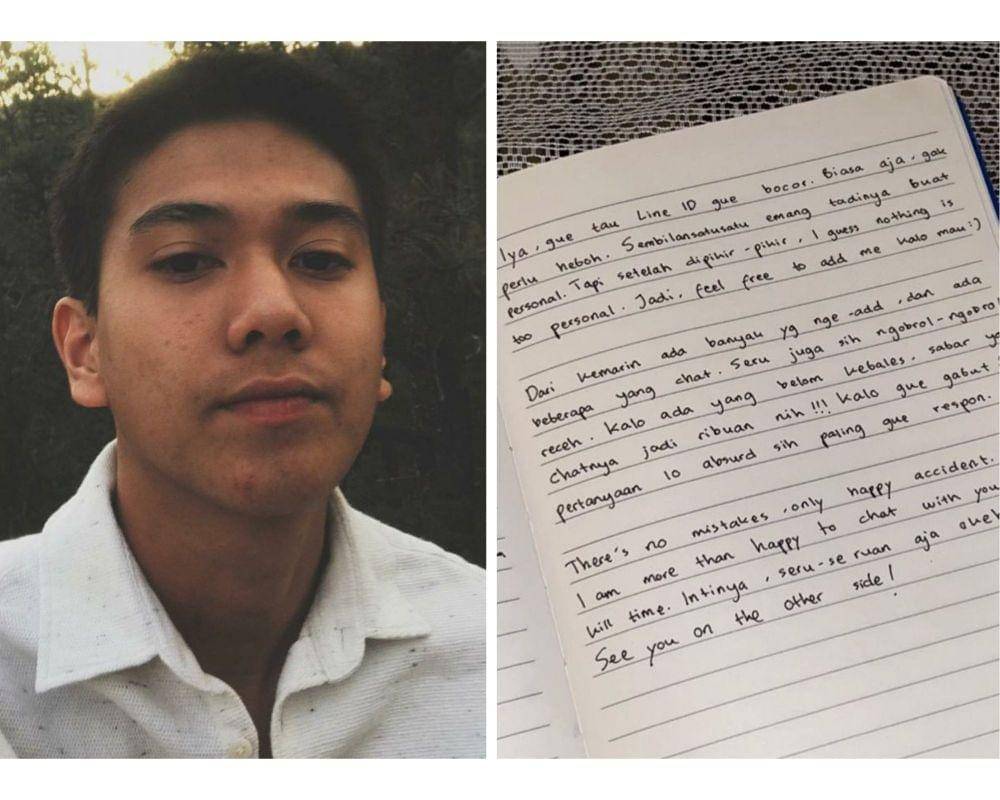 Iya, gue tau Line ID gue bocor. Biasa aja, gak
perlu heboh. Sembilansatusatu emang tadinya buat
personal. Tapi setelah dipikir-pikir, I guess nothing is
too personal. Jadi, feel free to add me kalo mau:)
Dari kemarin ada banyak yg nge-add, dan ada
beberapa yang chat. Seru juga sih ngobrol-ngobrol
receh. Kalo ada yang belom kebales, sabar ya
chatnya jadi ribuan nih!!! Kalo gue gabut
pertanyaan lo absurd sih paling gue respon.
There's no mistakes, only happy accident.
I am more than happy to chat with you
kill time. Intinya, seru-seruan aja okeh
See you on the other side!